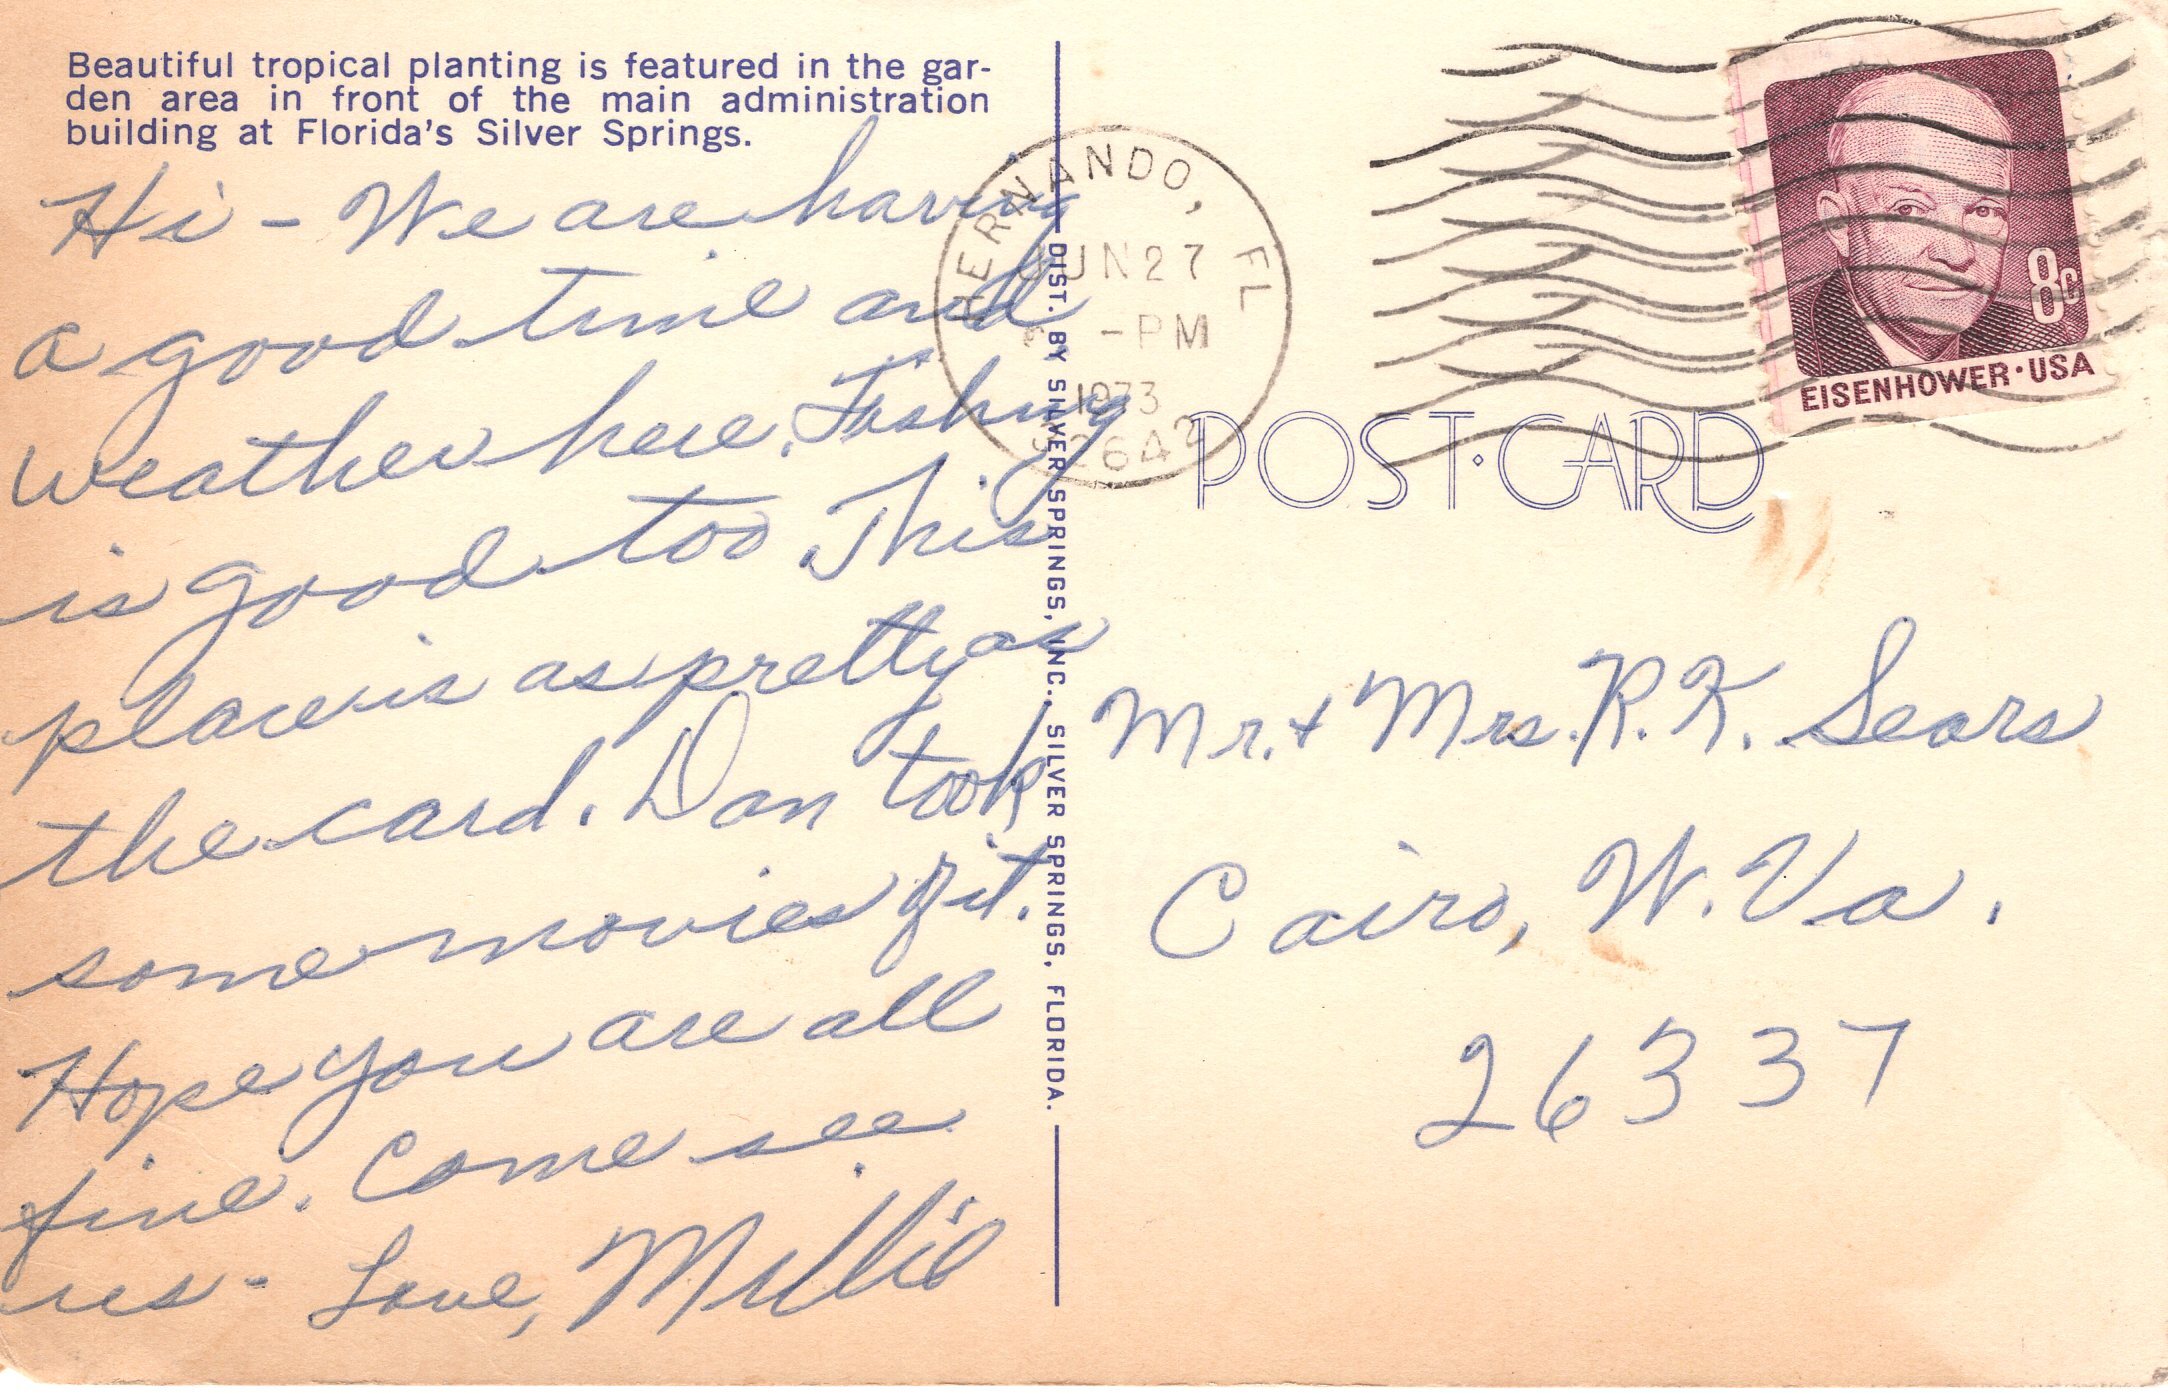 Beautiful tropical planting is featured in the gar-
den area in front of the main administration
building at Florida's Silver Springs.
Hi - We are having
a good time and
weather here. Fishing
is good too. This
place is as pretty as
the card. Dan took
some movies of it.
Hope you are all
fine. Come see
us - Love, Millie
DIST. BY SILVER SPRINGS, INC., SILVER SPRINGS, FLORIDA.
HERNANDO, FL
JUN 27
-PM
1973
32642
EISENHOWER·USA
8c
POST·CARD
Mr. + Mrs. R. K. Sears
Cairo, W. Va.
26337